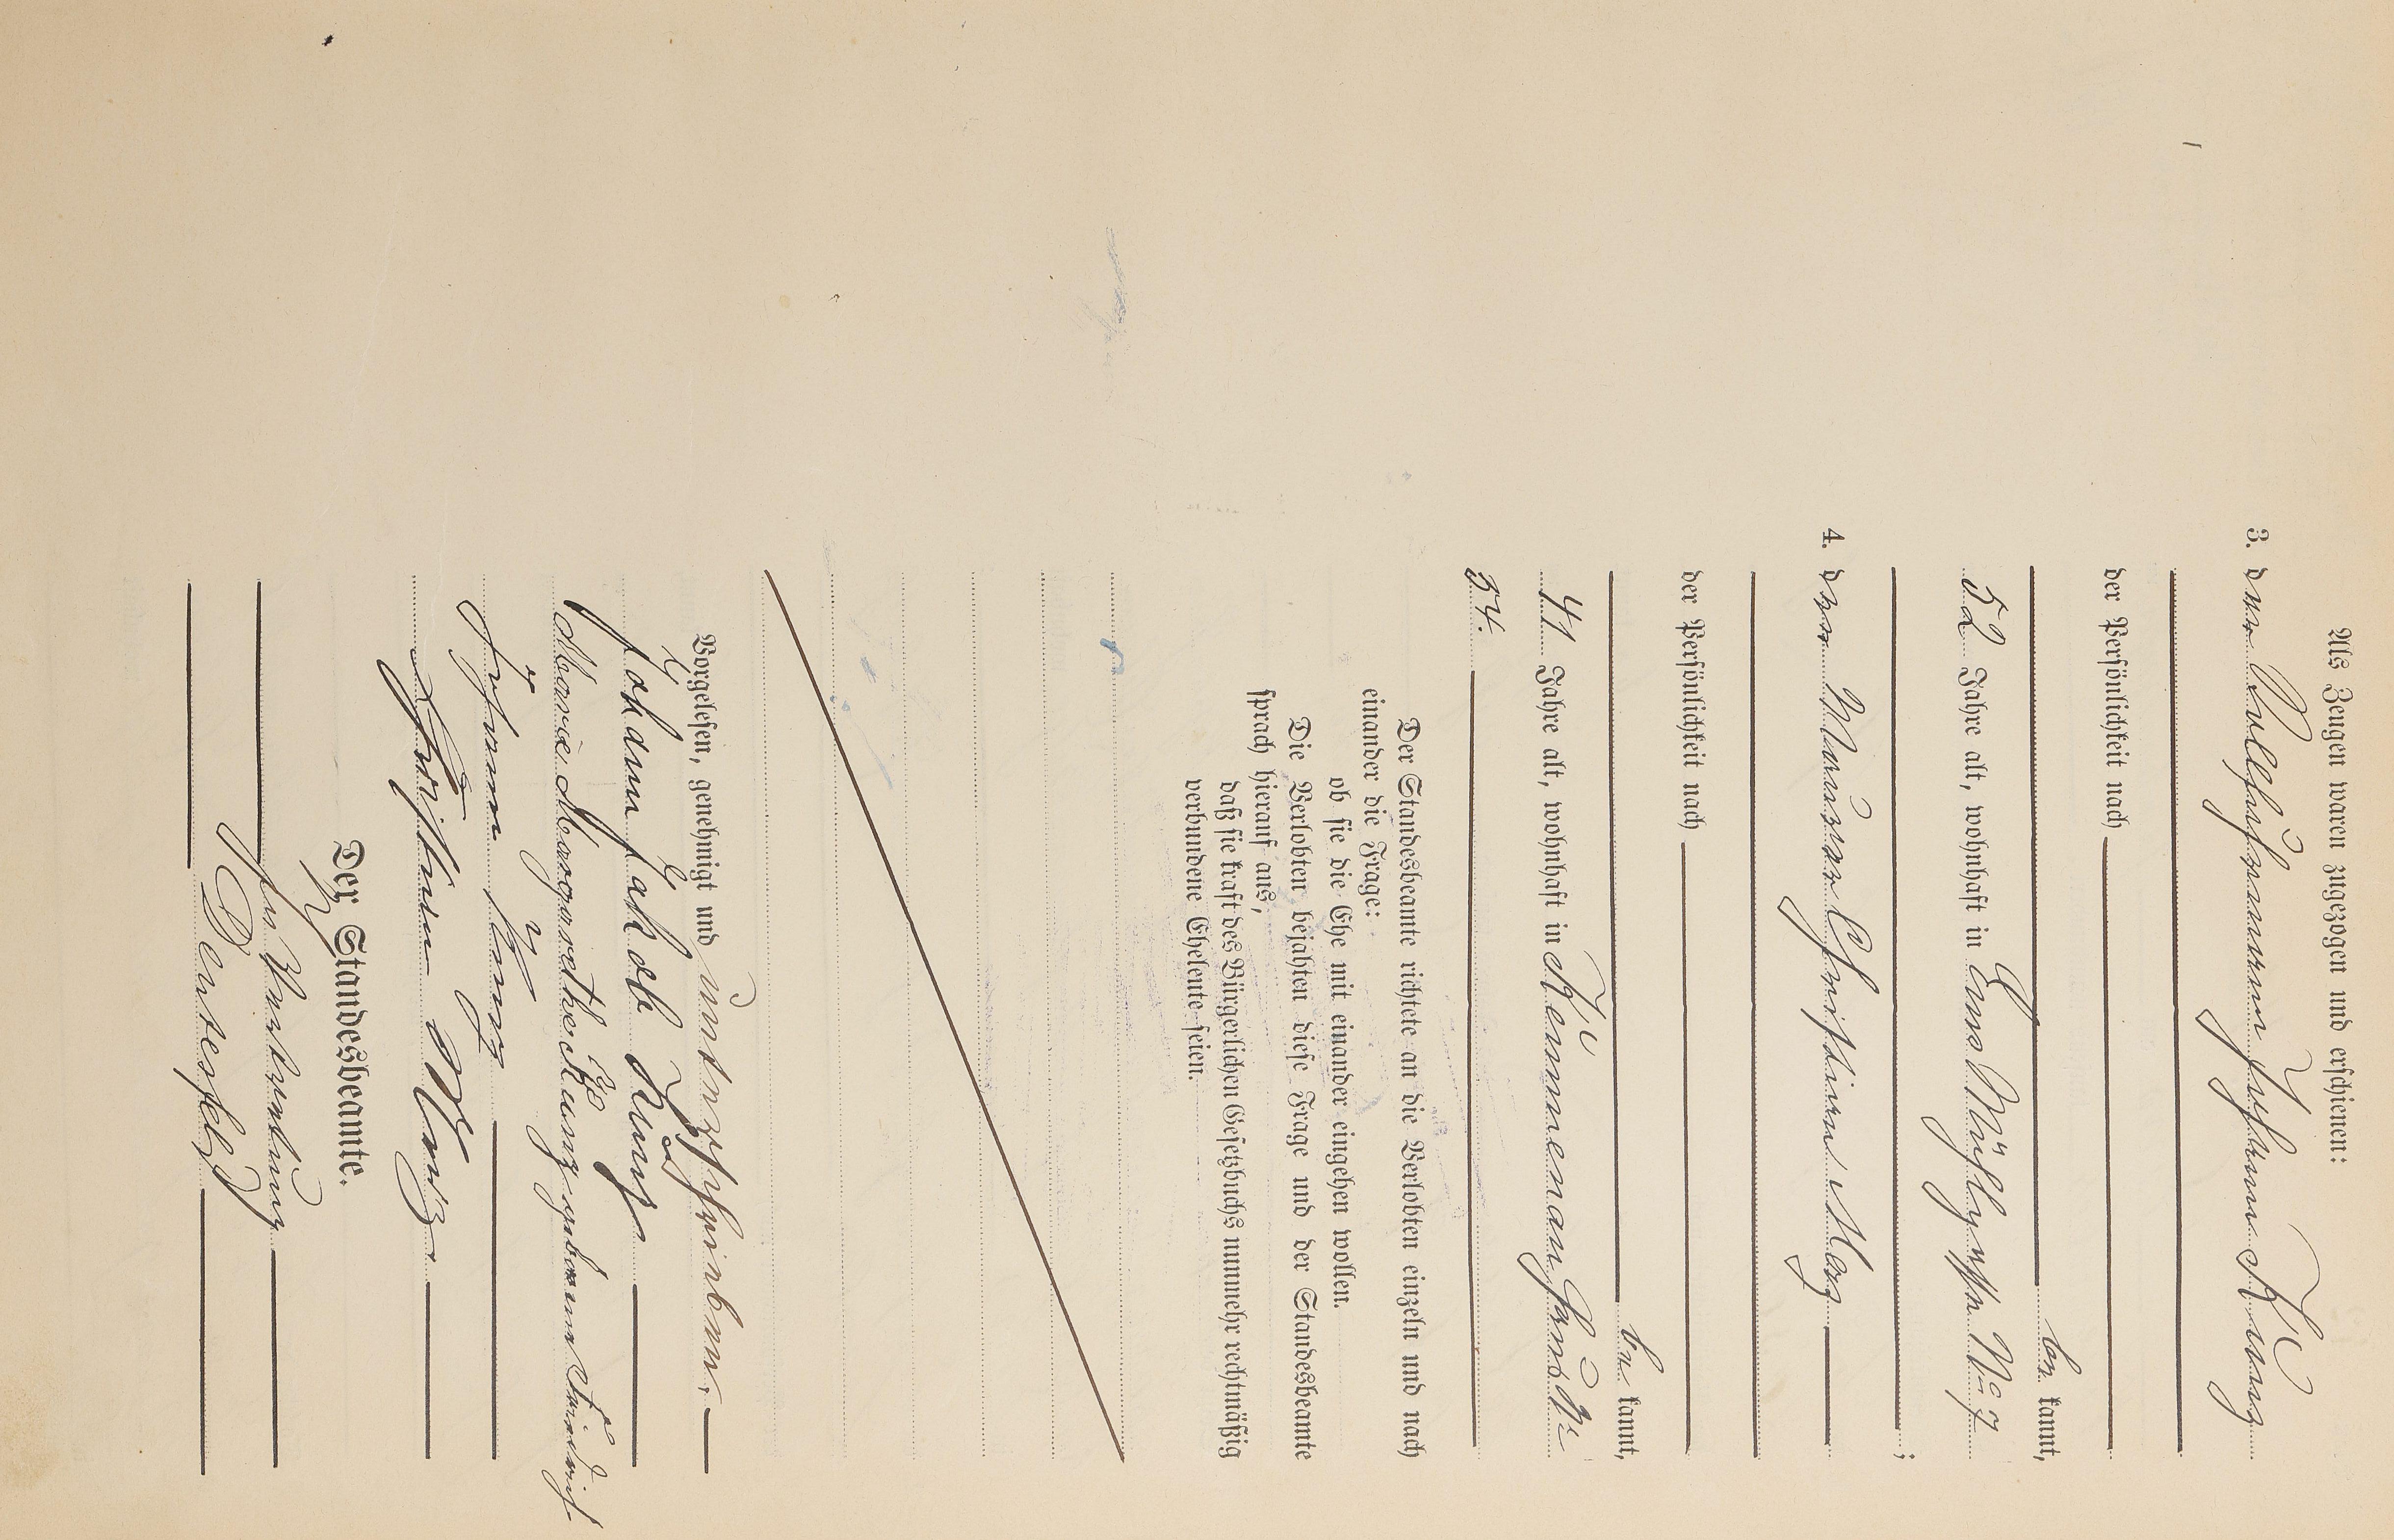 Als Zeugen waren zugezogen und erschienen:
3. der
Johann Kunz
der Persönlichkeit nach
be kannt,
52 Jahre alt, wohnhaft in Ems Mühlgasse No 7
;
4. der Maurer Christian Merz
der Persönlichkeit nach
be kannt,
41 Jahre alt, wohnhaft in Kemmenau Haus No
54.
Der Standesbeamte richtete an die Verlobten einzeln und nach
einander die Frage:
ob sie die Ehe mit einander eingehen wollen.
Die Verlobten bejahten diese Frage und der Standesbeamte
sprach hierauf aus,
daß sie kraft des Bürgerlichen Gesetzbuchs nunmehr rechtmäßig
verbundene Eheleute seien.
Vorgelesen, genehmigt und unterschrieben.
Johann Jakob Kunz
Marie Margarethe Kunz geborene
Johann Kunz
Christian Merz
Der Standesbeamte.
In Vertretung